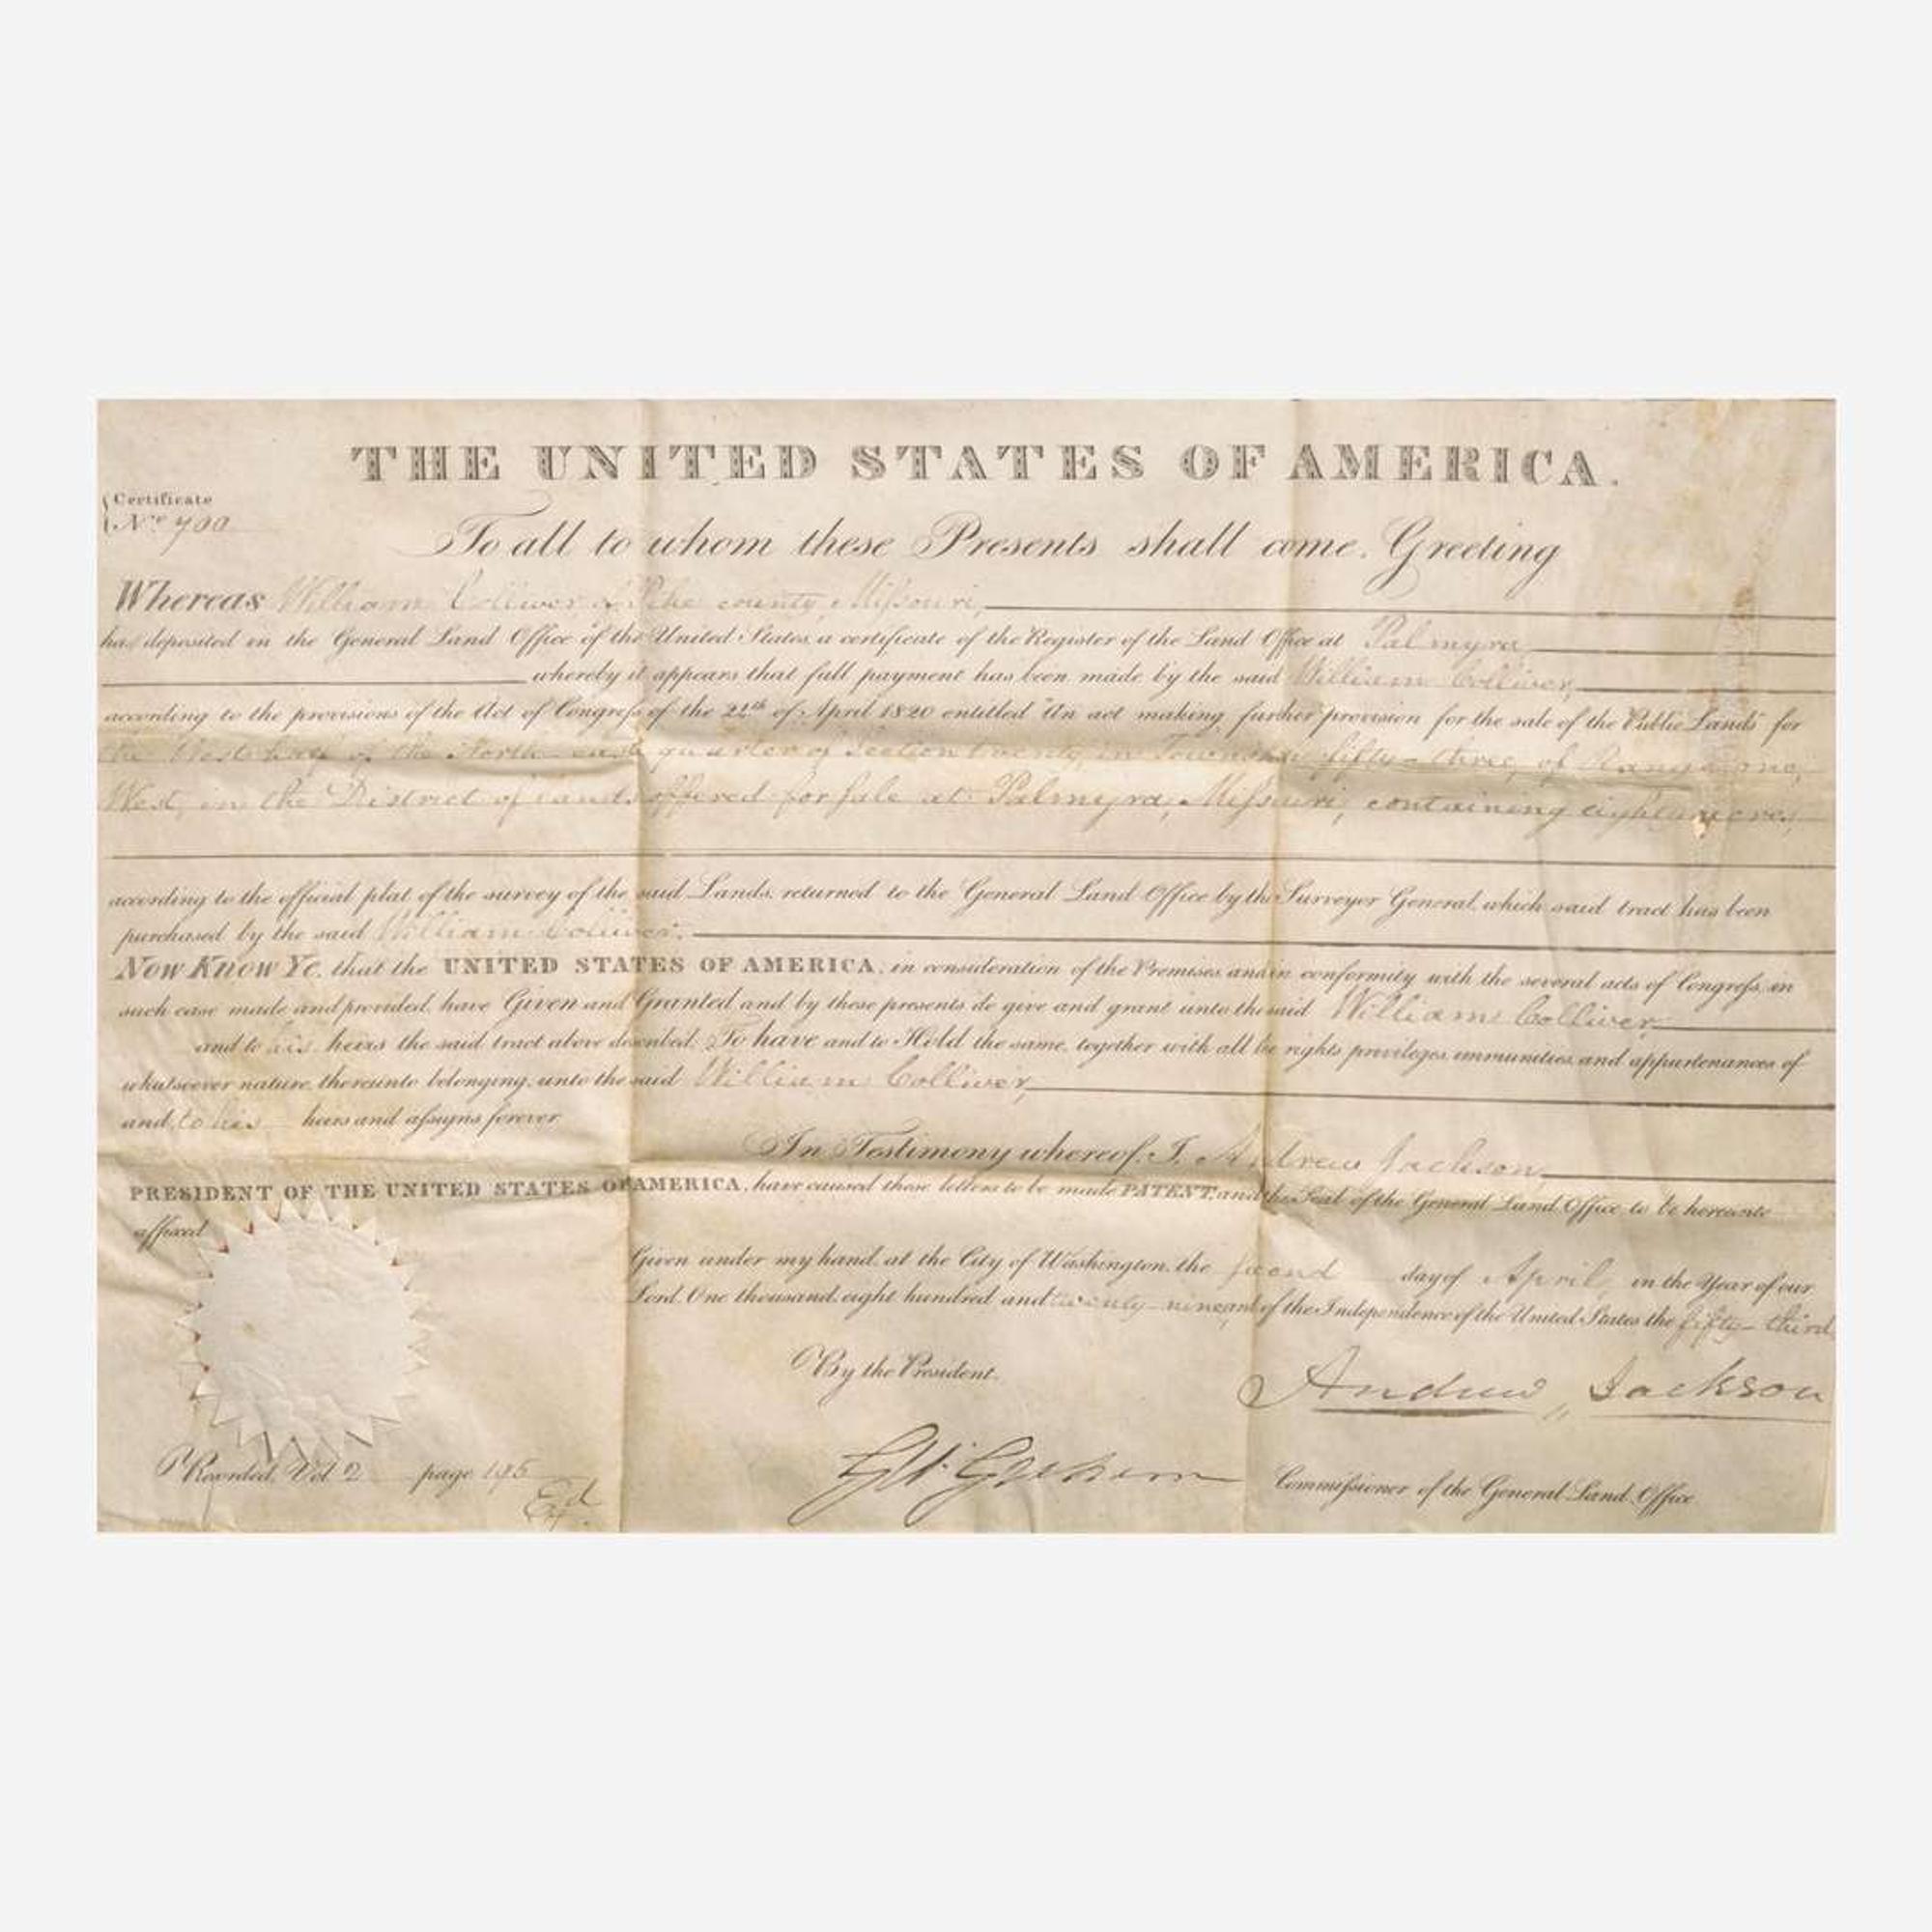 THE UNITED STATES OF AMERICA.
Certificate
No. 700
To all to whom these Presents shall come, Greeting
Whereas William Colliver of Pike county, Missouri,
has deposited in the General Land Office of the United States, a certificate of the Register of the Land Office at Palmyra
whereby it appears that full payment has been made by the said William Colliver,
according to the provisions of the Act of Congress of the 24th of April 1820 entitled "An act making further provision for the sale of the Public Lands" for
the West half of the North east quarter of Section twenty, in Township fifty-three, of Range one,
West, in the District of Lands offered for sale at Palmyra, Missouri, containing eighty acres,
according to the official plat of the survey of the said Lands, returned to the General Land Office by the Surveyor General, which said tract has been
purchased by the said William Colliver.
Now Know Ye, that the UNITED STATES OF AMERICA, in consideration of the Premises, and in conformity with the several acts of Congress, in
such case made and provided, have Given and Granted and by these presents do give and grant unto the said William Colliver
and to his heirs the said tract above described. To have and to Hold the same, together with all the rights privileges, immunities, and appurtenances of
whatsoever nature, thereunto belonging, unto the said William Colliver,
and to his heirs and assigns forever
In Testimony whereof, I, Andrew Jackson
PRESIDENT OF THE UNITED STATES OF AMERICA, have caused these letters to be made PATENT, and the Seal of the General Land Office to be hereunto
affixed
Given under my hand, at the City of Washington, the second day of April, in the Year of our
Lord One thousand, eight hundred and twenty-nine and of the Independence of the United States the fifty-third
By the President.
Andrew Jackson
Geo: Graham Commissioner of the General Land Office
Recorded, Vol 2 page 195
Exd.